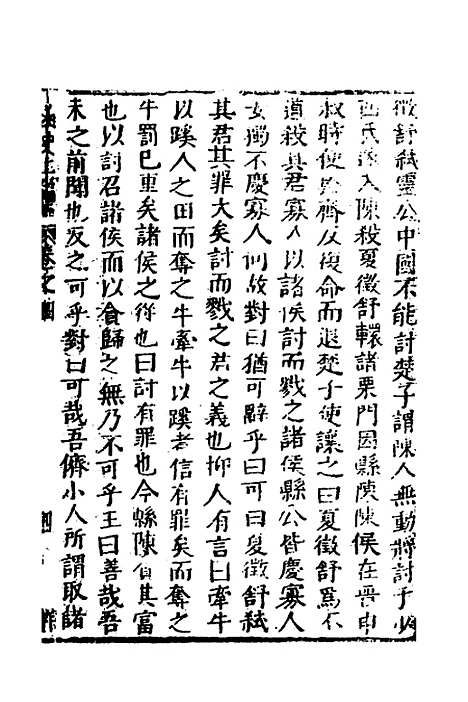 徵舒弒靈公中國不能討楚子謂陳人無動將討于少
西氏遂入陳殺夏徵舒轘諸栗門因縣陳陳侯在晉申
叔時使於齊反復命而退楚子使讓之曰夏徵舒爲不
道殺其君寡人以諸侯討而戮之諸侯縣公皆慶寡人
女獨不慶寡人何故對曰猶可辭乎曰可曰夏徵舒弒
其君其罪大矣討而戮之君之義也抑人有言曰牽牛
以蹊人之田而奪之牛牽牛以蹊者信有罪矣而奪之
牛罰已重矣諸侯之從也曰討有罪也今縣陳貪其富
也以討召諸侯而以貪歸之無乃不可乎王曰善哉吾
未之前聞也反之可乎對曰可哉吾儕小人所謂取諸
卷之四